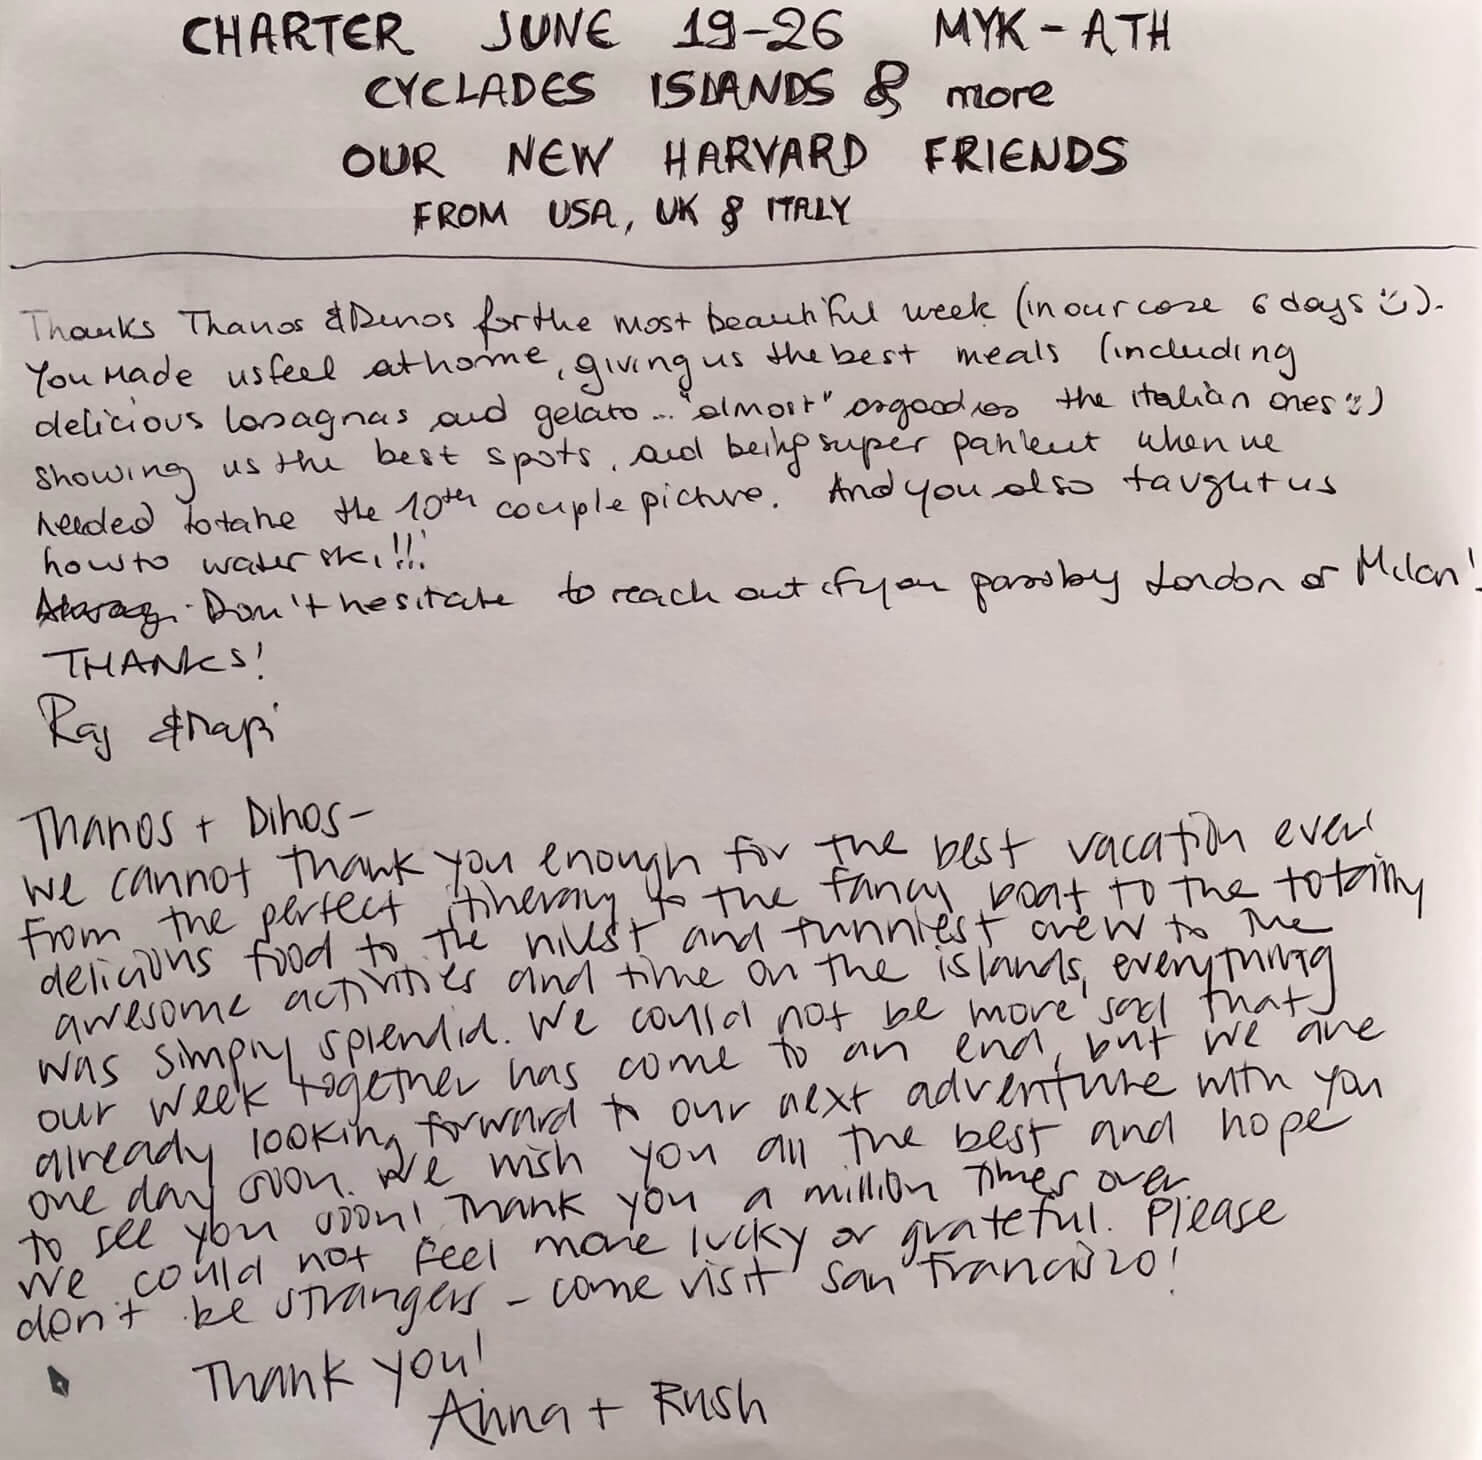 CHARTER JUNE 19-26 MYK-ATH
CYCLADES ISLANDS & more
OUR NEW HARVARD FRIENDS
FROM USA, UK & ITALY
Thanks Thanos & Dinos for the most beautiful week (in our case 6 days :)).
You made us feel at home, giving us the best meals (including
delicious lasagnas and gelato... "almost" as good as the italian ones :))
showing us the best spots, and being super patient when we
needed to take the 10th couple picture. And you also taught us
how to water ski!!!
Don't hesitate to reach out if you pass by London or Milan!
THANKS!
Raj &
Thanos + Dinos-
We cannot thank you enough for the best vacation ever!
From the perfect itinerary to the fancy boat to the totally
delicious food to the nicest and funniest crew to the
awesome activities and time on the islands, everything
was simply splendid. We could not be more sad that
our week together has come to an end, but we are
already looking forward to our next adventure with you
one day soon. We wish you all the best and hope
to see you soon! Thank you a million times over.
We could not feel more lucky or grateful. Please
don't be strangers - come visit San Francisco!
Thank you!
Anna + Rush